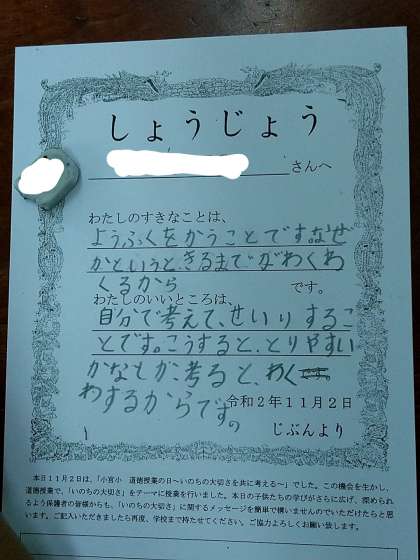 しょうじょう
さんへ
わたしのすきなことは、
ようふくをかうことです。なぜ
かというと、きるまでがわくわ
くるから
です。
わたしのいいところは、
自分で考えて、せいりするこ
とです。こうすると、とりやすい
かなもが、考ると、わく
わするからです。
令和2年11月2日
じぶんより
本日11月2日は、「小宮小 道徳授業の日〜いのちの大切さを共に考える〜」でした。この機会を生かし、
道徳授業で、「いのちの大切さ」をテーマに授業を行いました。本日の子供たちの学びがさらに広げ、深められ
るよう保護者の皆様からも、「いのちの大切さ」に関するメッセージを簡単で構いませんのでいただけたらと思
います。ご記入いただきましたら再度、学校まで持たせてください。ご協力よろしくお願い致します。